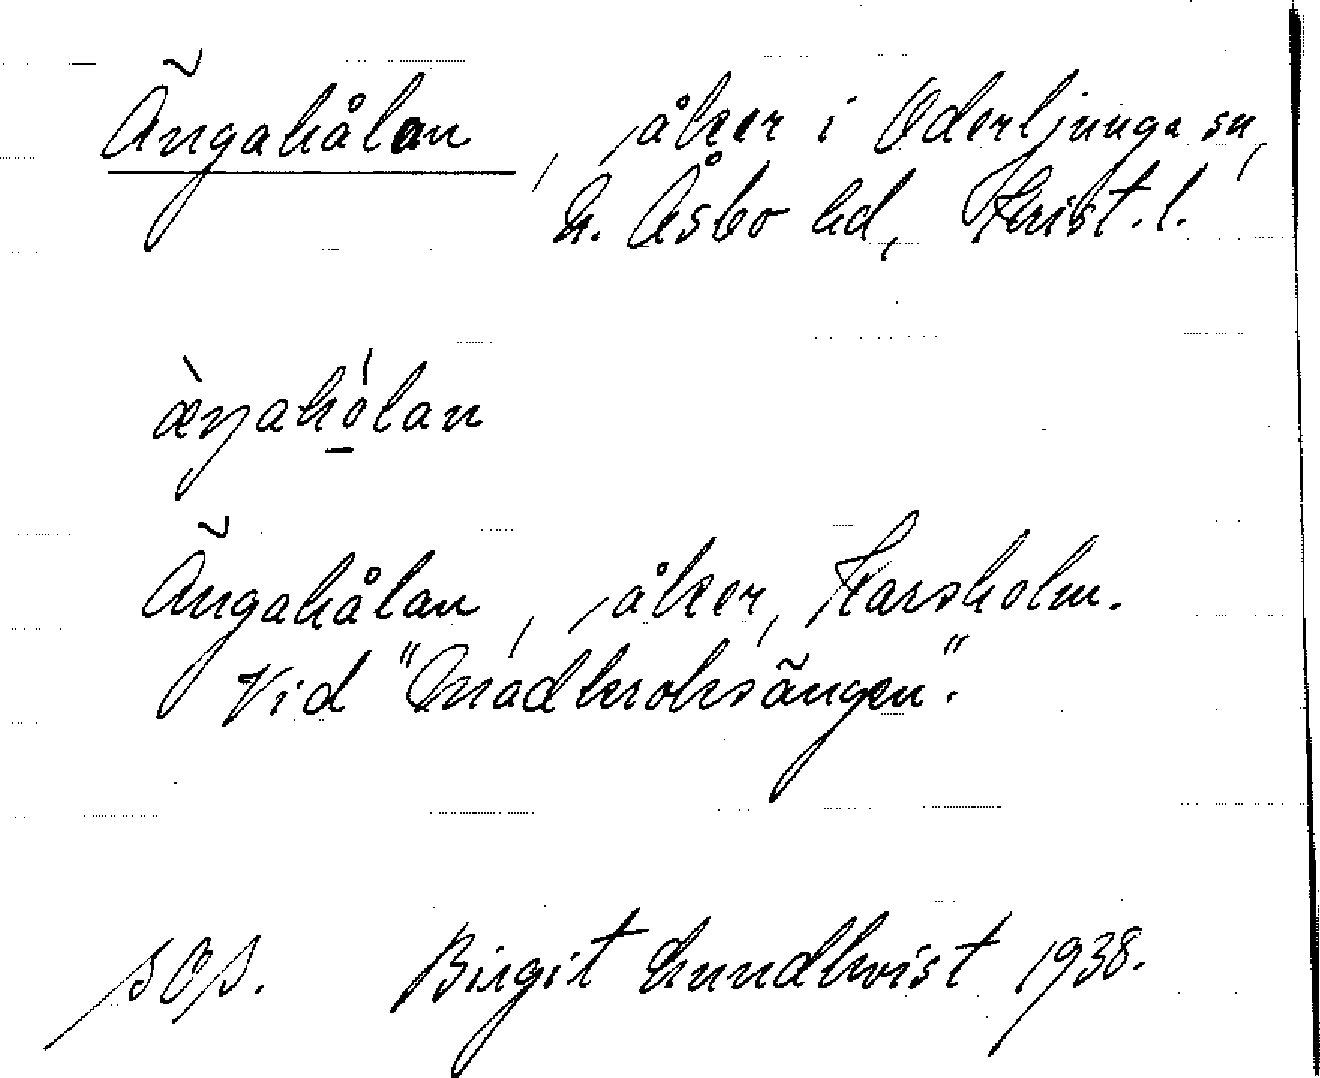 Ängahålan, åker i Oderljunga sn,
N. Åsbo hd, Krist. l.
æ̀ŋahó̱lan
Ängahålan, åker, Harsholm.
Vid "Madkroksängen".
Birgit Lundkvist 1938.